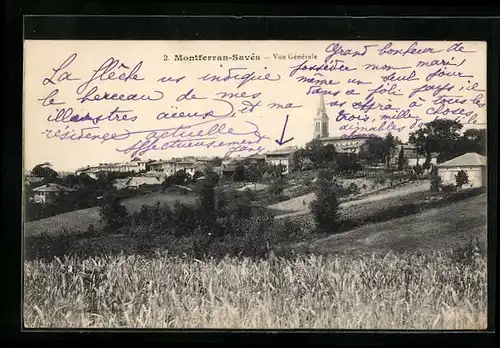 2 Montferran-Savès — Vue Générale
La flèche vs indique
le berceau de mes
illustres aïeux et ma
résidence actuelle
Affectueusement
Grand bonheur de
posséder mon mari
même un seul jour
dans ce joli pays, il
vs offra à tous les
trois, mille choses
aimables